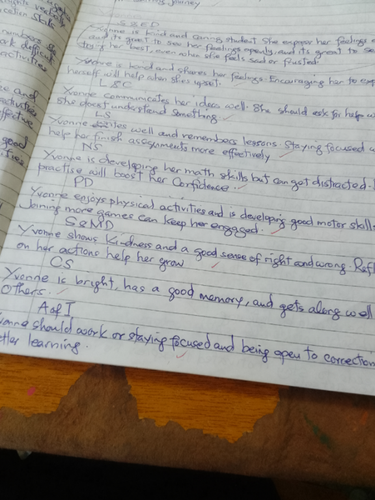 journey
S & E D
Yvonne is kind and caring student She express her feelings
and its great to see her feelings openly, and its great to see
her best, even when she feels sad or frustrated.
Yvonne is kind and shares her feelings. Encouraging her to exp
herself will help when she's upset.
L & C
Yvonne Communicates her ideas well. She should ask for help w
She doesn't understand something.
L S
Yvonne writes well and remembers lessons. Staying focused w
help her finish assignments more effectively
N S
Yvonne is developing her math skills but can get distracted.
practise will boost her Confidence.
P D
Yvonne enjoys physical activities and is developing good motor skills
Joining more games can keep her engaged.
S & M D
Yvonne shows Kindness and a good sense of right and wrong. Refl
on her actions help her grow
C S
Yvonne is bright, has a good memory, and gets along well
Others.
A of I
Yvonne should work or staying focused and being open to correction
learning.
good